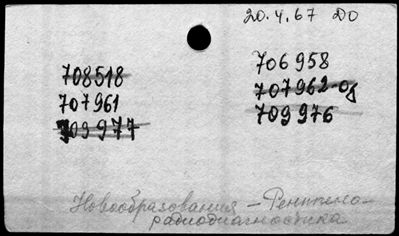 20.4.67 До
708518
707961
709977
706958
707962-од
709976
Новообразования - Рентгено-
радиодиагностика